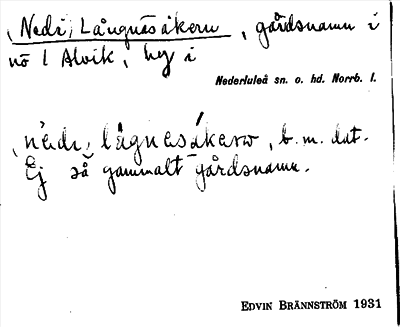 (Nedi) Långnäsåkern, gårdsnamn i
nö l Alvik, by i
Nederluleå sn. o. hd. Norrb. l.
(nēdi) lågnesákerw, b. m. dat.
Ej så gammalt gårdsnamn.
EDVIN BRÄNNSTRÖM 1931